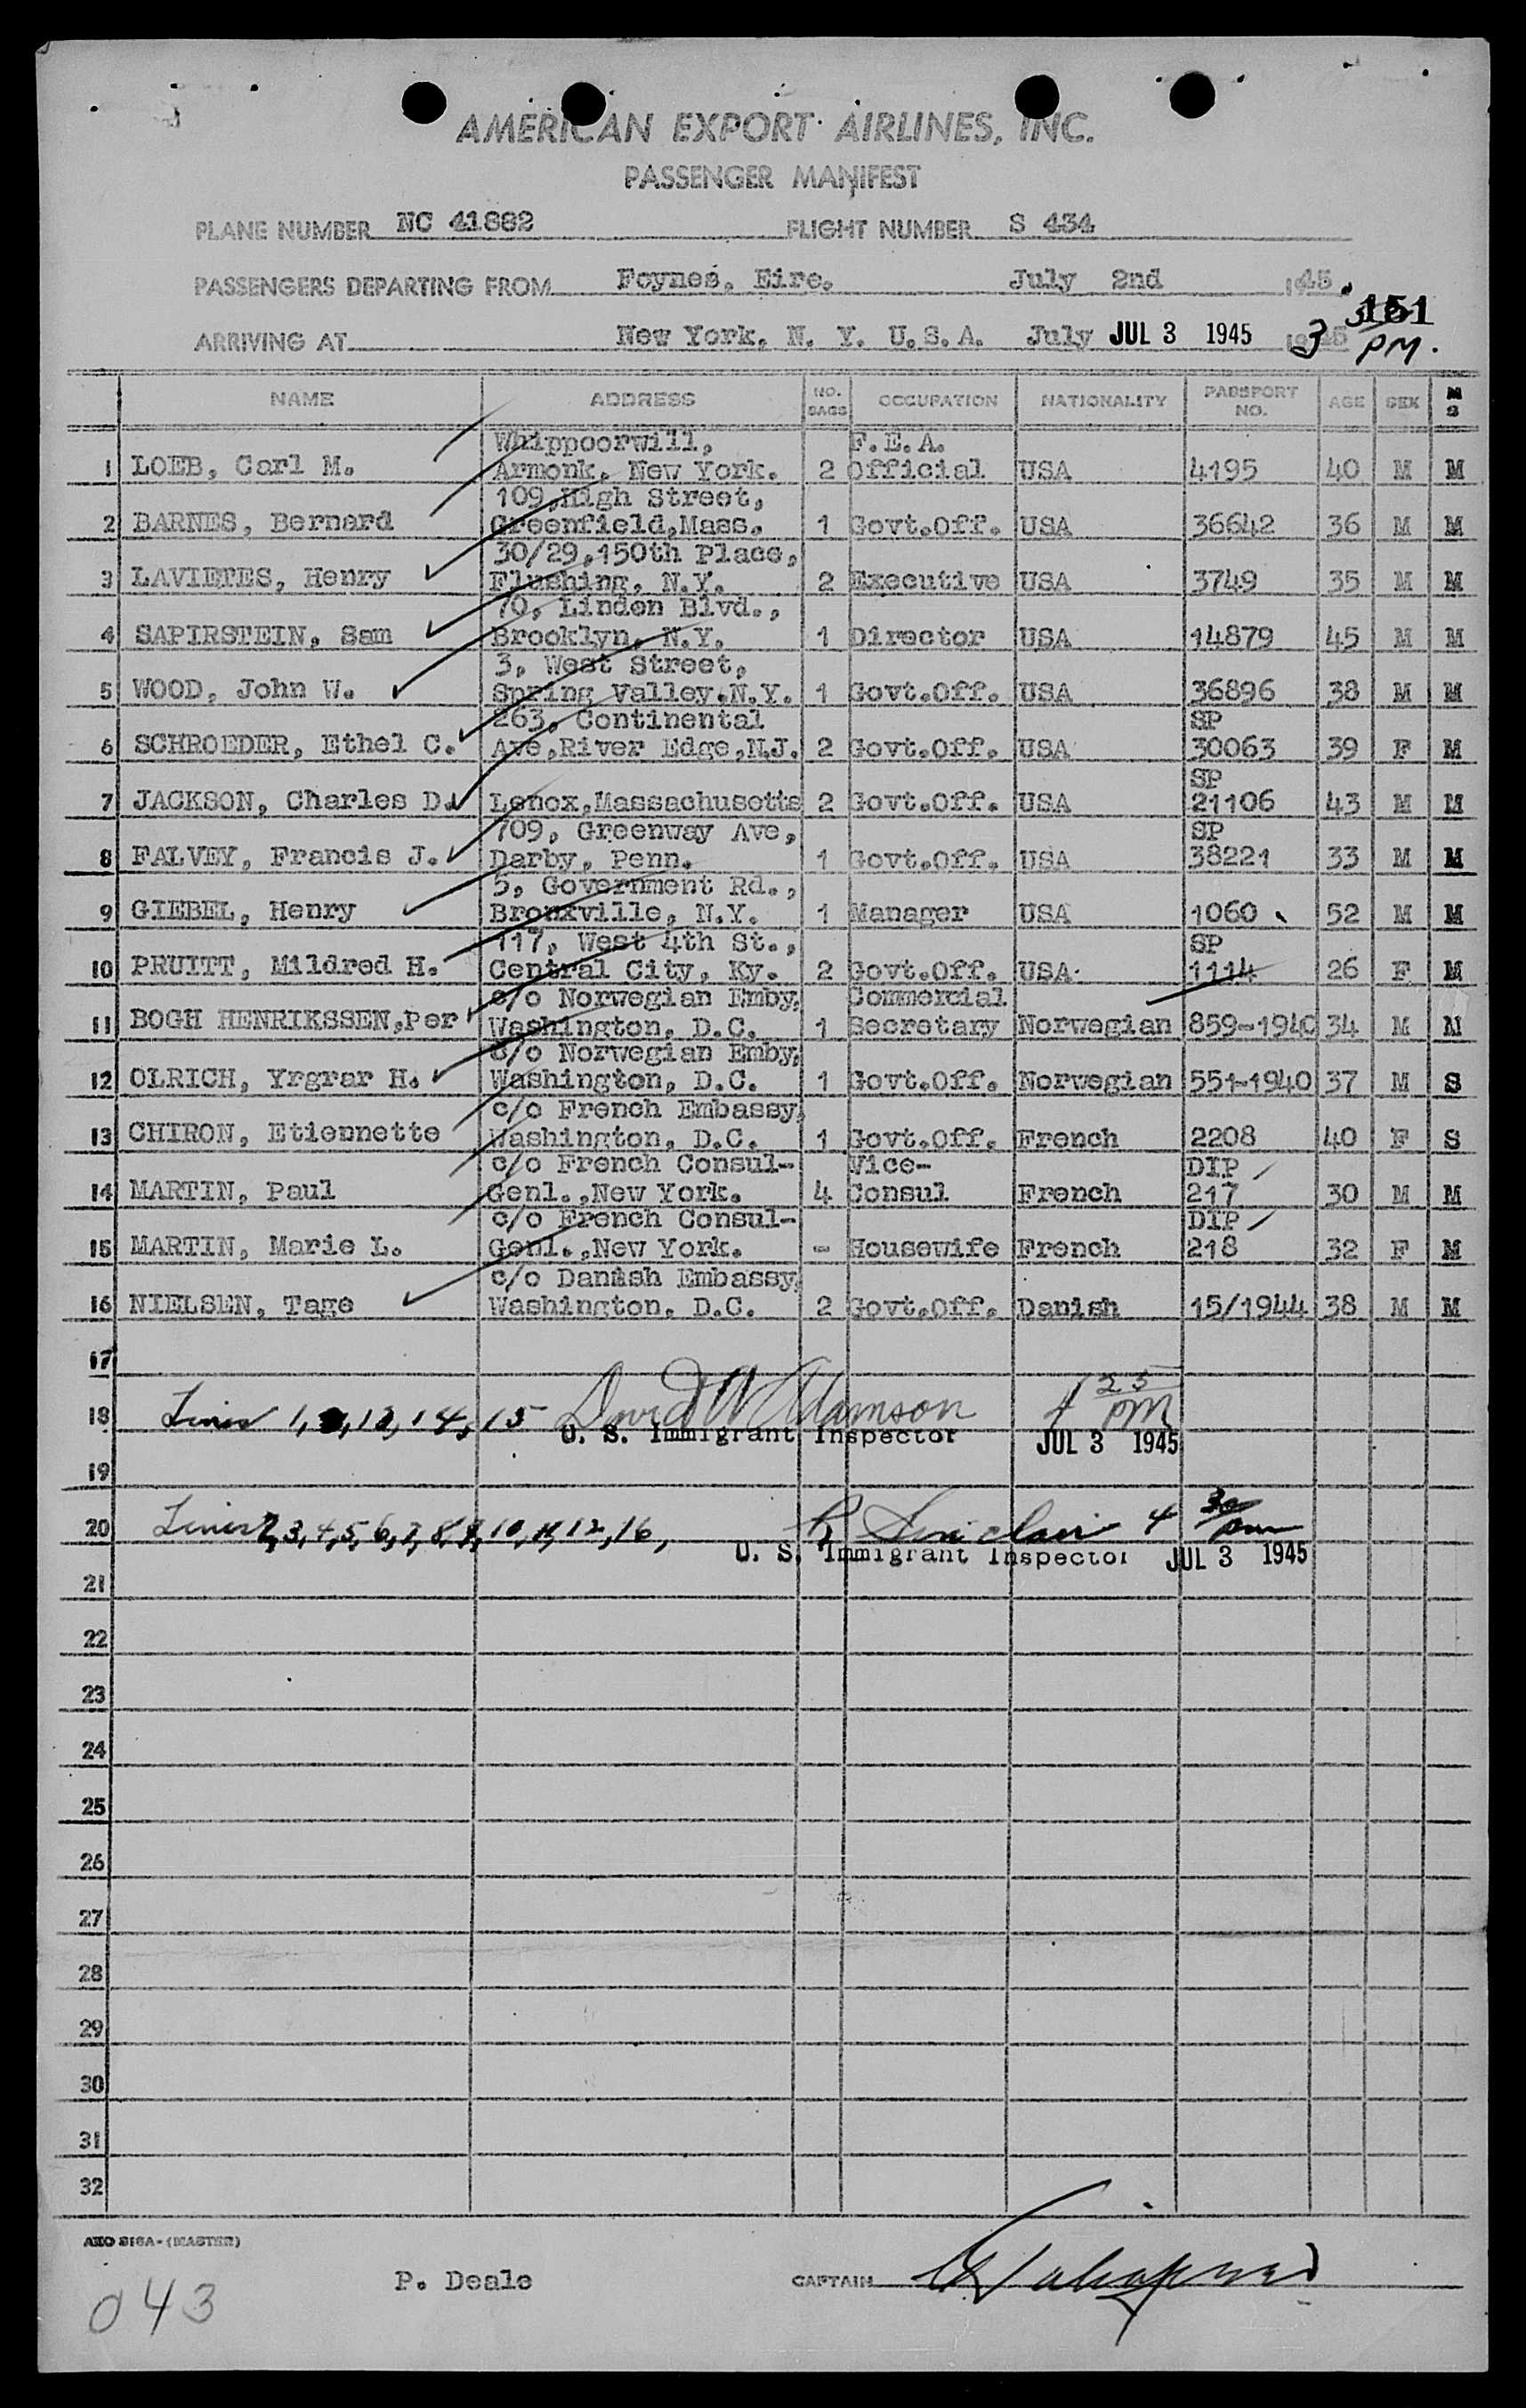 AMERICAN EXPORT AIRLINES, INC.
PASSENGER MANIFEST
PLANE NUMBER NC 41882 FLIGHT NUMBER S 434
PASSENGERS DEPARTING FROM Foynes, Eire. July 2nd 1945.
151
ARRIVING AT New York, N. Y. U.S.A. July JUL 3 1945 1945 3 PM.
NAME ADDRESS NO. BAGS OCCUPATION NATIONALITY PASSPORT NO. AGE SEX M S
Whippoorwill, F.E.A.
1 LOEB, Carl M. Armonk, New York. 2 Official USA 4195 40 M M
109,High Street,
2 BARNES, Bernard Greenfield,Mass. 1 Govt.Off. USA 36642 36 M M
30/29,150th Place,
3 LAVIETES, Henry Flushing, N.Y. 2 Executive USA 3749 35 M M
70, Linden Blvd.,
4 SAPIRSTEIN, Sam Brooklyn, N.Y. 1 Director USA 14879 45 M M
3, West Street,
5 WOOD, John W. Spring Valley.N.Y. 1 Govt.Off. USA 36896 38 M M
263, Continental SP
6 SCHROEDER, Ethel C. Ave,River Edge,N.J. 2 Govt.Off. USA 30063 39 F M
SP
7 JACKSON, Charles D. Lenox,Massachusetts 2 Govt.Off. USA 21106 43 M M
709, Greenway Ave, SP
8 FALVEY, Francis J. Darby, Penn. 1 Govt.Off. USA 38221 33 M M
5, Government Rd.,
9 GIEBEL, Henry Bronxville, N.Y. 1 Manager USA 1060 52 M M
117, West 4th St., SP
10 PRUITT, Mildred H. Central City, Ky. 2 Govt.Off. USA 1114 26 F M
c/o Norwegian Emby, Commercial
11 BOGH HENRIKSSEN,Per Washington, D.C. 1 Secretary Norwegian 859-1940 34 M M
c/o Norwegian Emby,
12 OLRICH, Yrgrar H. Washington, D.C. 1 Govt.Off. Norwegian 551-1940 37 M S
c/o French Embassy,
13 CHIRON, Etiennette Washington, D.C. 1 Govt.Off. French 2208 40 F S
c/o French Consul- Vice- DIP
14 MARTIN, Paul Genl.,New York. 4 Consul French 217 30 M M
c/o French Consul- DIP
15 MARTIN, Marie L. Genl.,New York. - Housewife French 218 32 F M
c/o Danish Embassy,
16 NIELSEN, Tage Washington, D.C. 2 Govt.Off. Danish 15/1944 38 M M
17
18 Lines 1, 13, 14, 15 David W Adamson 4 25 PM
U. S. Immigrant Inspector JUL 3 1945
19
20 Lines 2, 3, 4, 5, 6, 7, 8, 9, 10, 11, 12, 16, R Sinclair 4 30 pm
U. S. Immigrant Inspector JUL 3 1945
21
22
23
24
25
26
27
28
29
30
31
32
(MASTER)
P. Deale CAPTAIN
043